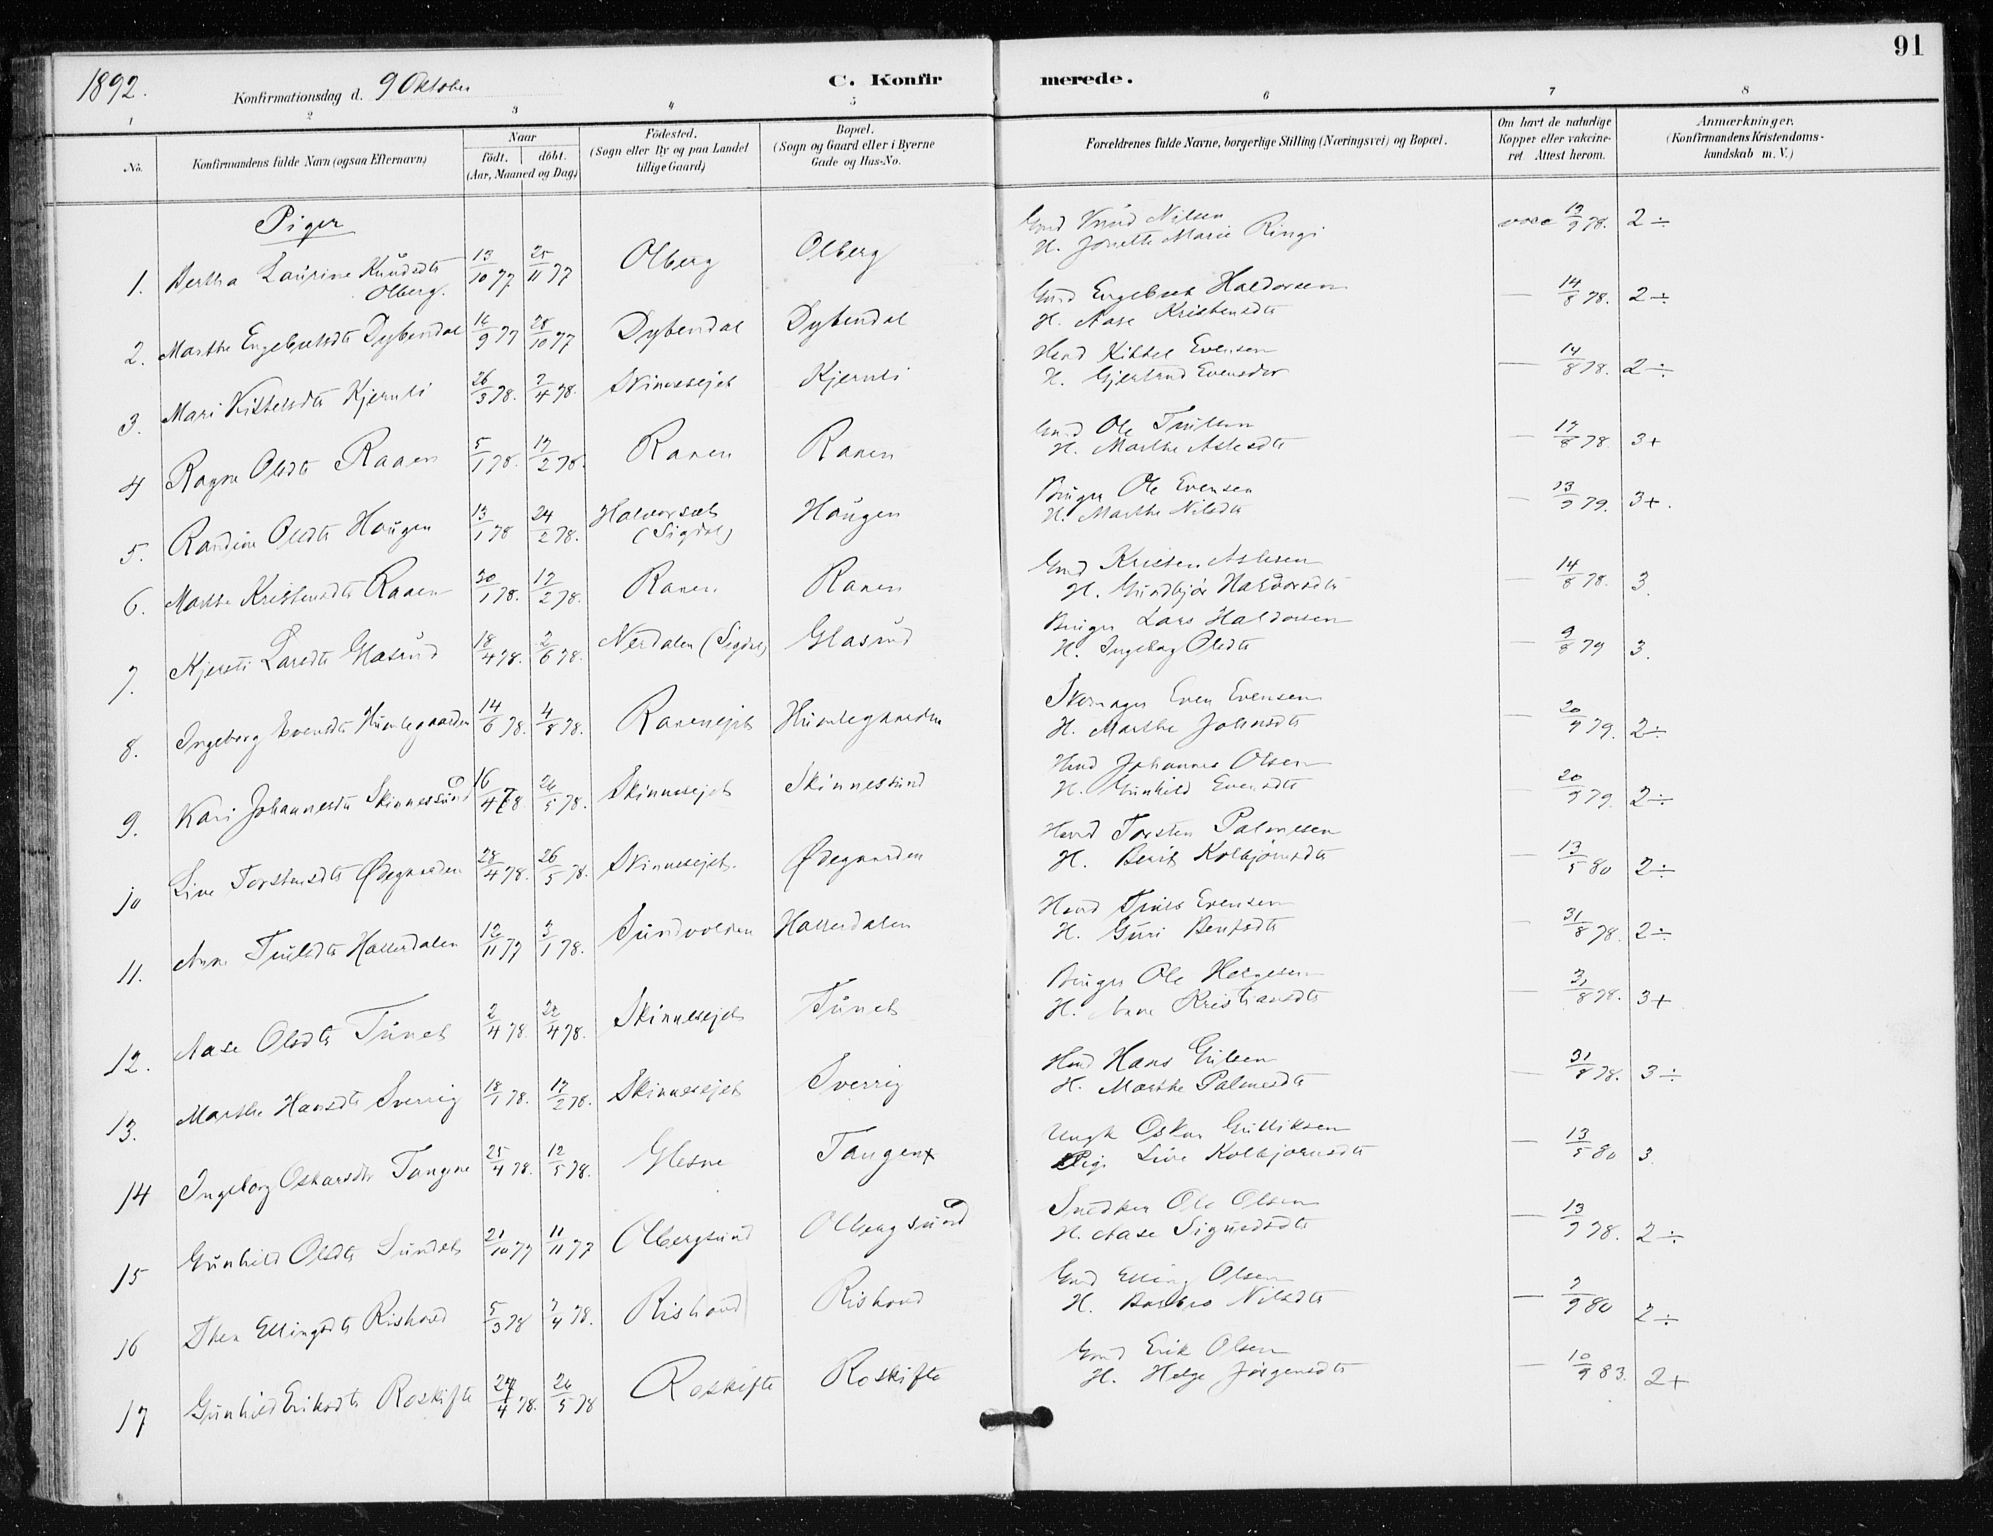 91
1892. Konfirmationsdag d. 9 Oktober C. Konfir merede.
1 2 3 4 5 6 7 8
No. Konfirmandens fulde Navn (ogsaa Efternavn) Naar födt. döbt. (Aar, Maaned og Dag) Födested. (Sogn eller By og paa Landet tillige Gaard) Bopæl. (Sogn og Gaard eller i Byerne Gade og Hus-No. Forældrenes fulde Navne, borgerlige Stilling (Næringsvei) og Bopæl. Om havt de naturlige Kopper eller vakcineret. Attest herom. Anmærkninger. (Konfirmandens Kristendomskundskab m. V.)
Piger
1. Bertha Laurine Knudsdtr Olberg. 13/10 77 25/11 77 Olberg Olberg Gmd Knud Nilsen H. Jonette Marie Ringi vacc 13/9 78. 2÷
2. Marthe Engebretsdtr Dybendal 16/9 77 28/10 77 Dybendal Dybendal Gmd Engebret Haldorsen H. Aase Kristensdtr — 14/8 78. 2÷
3. Mari Kittelsdtr Kjernli 26/3 78. 7/4 78. Skinnesejet Kjernli Hmd Kittel Evensen H. Gjertrud Evensdtr — 14/8 78. 2÷
4 Ragne Olsdtr Raaen 5/1 78. 17/2 78. Raaen Raaen Gmd Ole Trulsen H. Marthe Aslesdtr — 17/8 78. 3+
5. Randine Olsdtr Haugen 13/1 78 24/2 78. Halvorset (Sigdal) Haugen Bruger Ole Evensen H. Marthe Nilsdtr — 23/9 79. 3+.
6. Marthe Kristensdtr Raaen 20/1 78. 17/2 78. Raaen Raaen Gmd Kristen Aslesen H. Gundbjør Haldorsdtr — 14/8 78. 3.
7. Kjersti Larsdtr Glasrud 18/4 78. 2/6 78. Nerdalen (Sigdal) Glasrud Bruger Lars Haldorsen H. Ingeborg Olsdtr — 9/8 79 3.
8. Ingeborg Evensdtr Humlegaarden 14/6 78. 4/8 78. Raaenejet Humlegaarden Skomager Even Evensen H. Marthe Johnsdtr — 20/9 79. 2÷
9. Kari Johannesdtr Skinnessund 16/4 78 26/5 78. Skinnesejet Skinnessund Hmd Johannes Olsen H. Gunhild Evensdtr — 20/9 79. 2÷
10 Live Torstensdtr Ødegaarden 28/4 78. 26/5 78. Skinnesejet. Ødegaarden Hmd Torsten Palmesen H. Berit Kolbjørnsdtr — 13/5 80 2÷
11. Anne Trulsdtr Hallerdalen 12/11 77 3/1 78. Sundvolden Hallerdalen Hmd Truls Evensen H. Guri Bentsdtr — 31/8 78. 2÷
12. Aase Olsdtr Tunet 2/4 78. 22/4 78. Skinnesejet Tunet Bruger Ole Helgesen H. Anne Kristiansdtr — 31/8 78. 3+
13. Marthe Hansdtr Sverrig 18/1 78. 17/2 78. Skinnesejet Sverrig Hmd Hans Gulsen H. Marthe Palmesdtr — 31/8 78. 3÷
14 Ingeborg Oskarsdtr Tangene 25/4 78. 12/5 78. Glesne Tangen Ungk Oskar Gulliksen Pige Live Kolbjørnsdtr — 13/5 80 3.
15 Gunhild Olsdtr Sundet 21/10 77 11/11 77 Olbergsund Olbergsund Snedker Ole Olsen H. Aase Sigurdsdtr — 13/9 78. 2÷
16 Thea Ellingsdtr Rishovd 5/3 78 7/4 78. Rishovd Rishovd Gmd Elling Olsen H. Barbro Nilsdtr — 7/9 80 2÷
17 Gunhild Eriksdtr Roskifte 24/4 78. 26/5 78 Roskifte Roskifte Gmd Erik Olsen H. Helge Jørgensdtr — 10/9 83. 2+